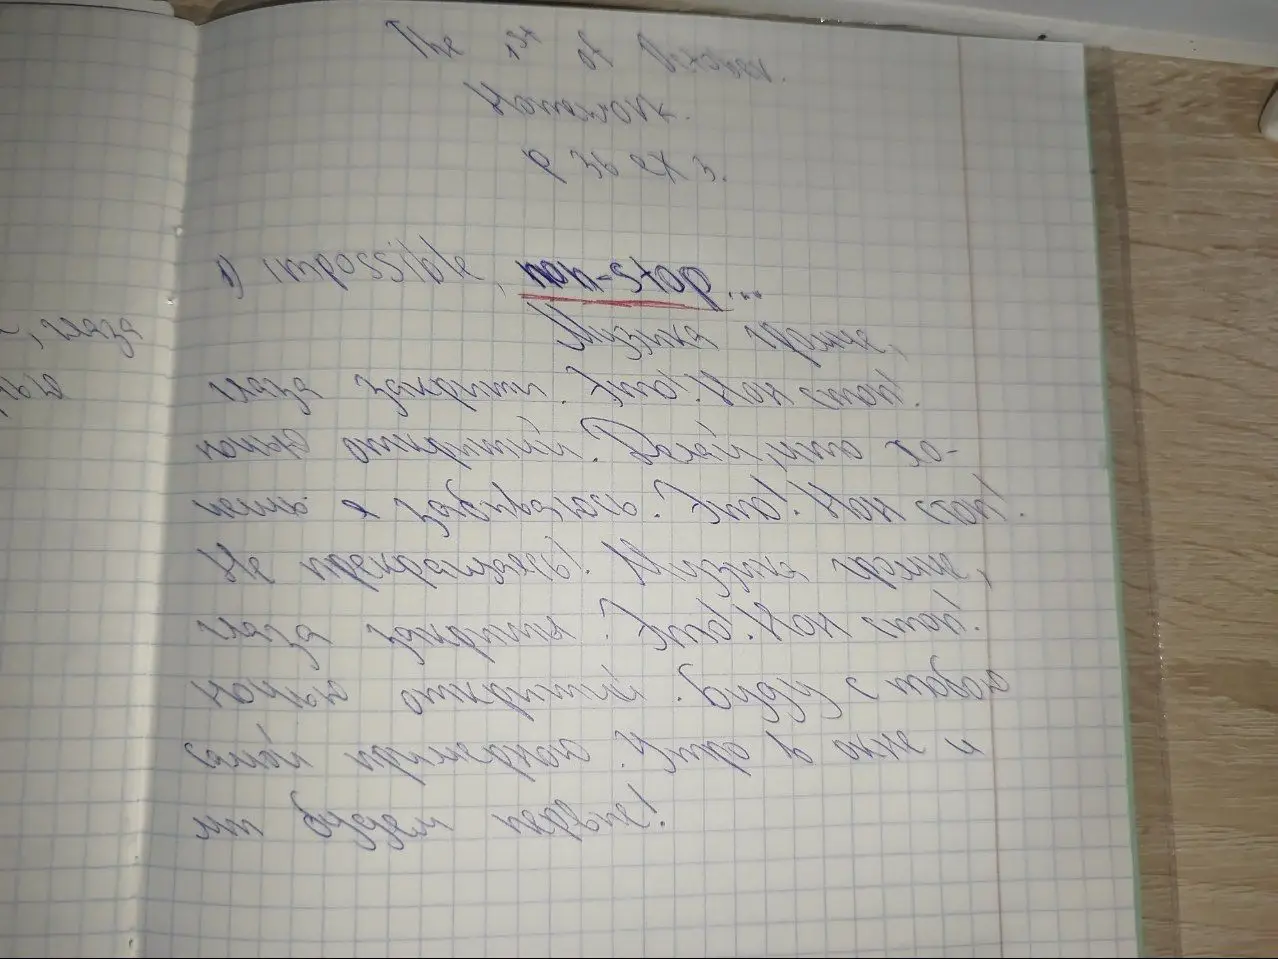 The 1st of October.
Homework.
p 36 ex 3.
1) impossible, non-stop...
Музыка громче,
глаза
глаза закрыты. Это! Нон стоп!
рью
ночью открытий. Делай, что хо-
чешь я забываюсь. Это! Нон стоп!
Не прекращаясь! Музыка громче,
глаза закрыты. Это! Нон стоп!
ночью открытий. Буду с тобою
самой примерною. Утро в окне и
мы будем первые!